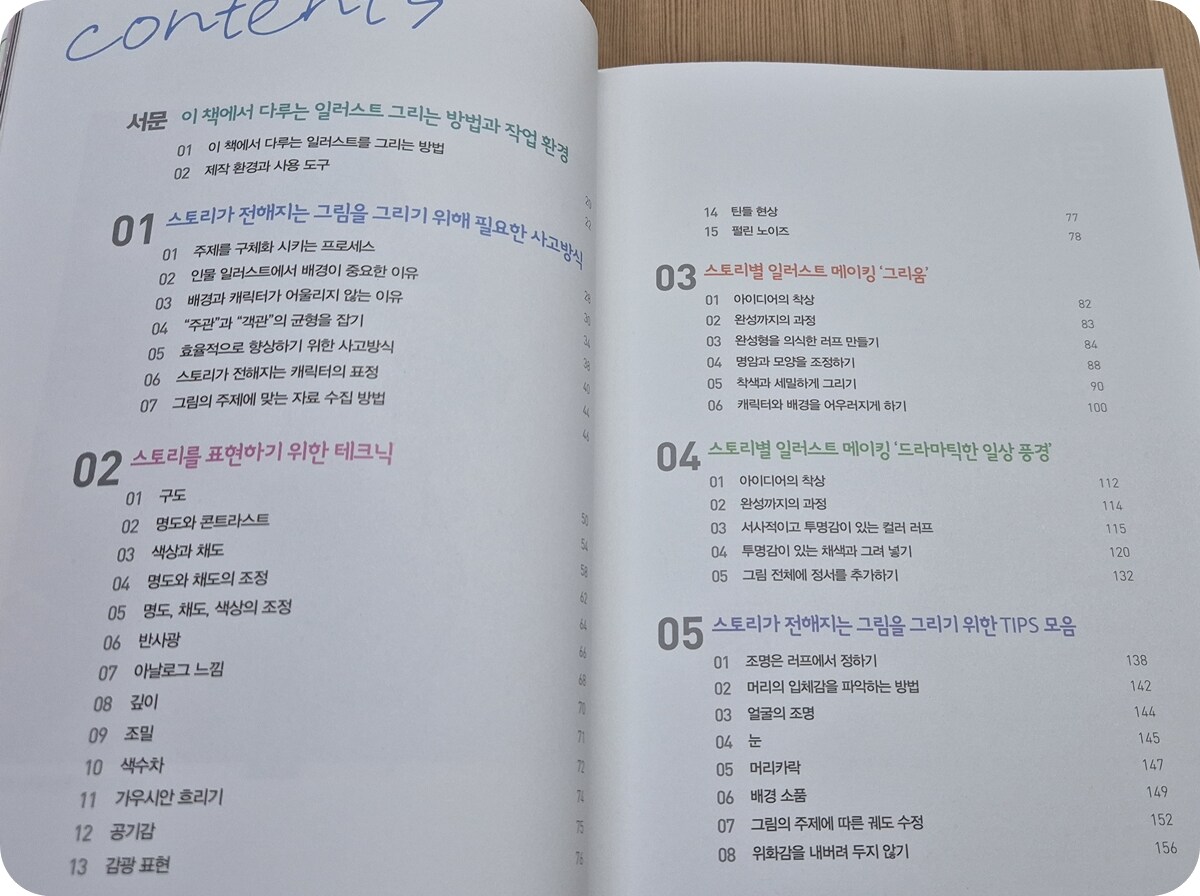 contents
서문 이 책에서 다루는 일러스트 그리는 방법과 작업 환경
01 이 책에서 다루는 일러스트를 그리는 방법 20
02 제작 환경과 사용 도구 22
01 스토리가 전해지는 그림을 그리기 위해 필요한 사고방식
01 주제를 구체화 시키는 프로세스 28
02 인물 일러스트에서 배경이 중요한 이유 30
03 배경과 캐릭터가 어울리지 않는 이유 34
04 “주관”과 “객관”의 균형을 잡기 38
05 효율적으로 향상하기 위한 사고방식 40
06 스토리가 전해지는 캐릭터의 표정 44
07 그림의 주제에 맞는 자료 수집 방법 46
02 스토리를 표현하기 위한 테크닉
01 구도 50
02 명도와 콘트라스트 54
03 색상과 채도 58
04 명도와 채도의 조정 62
05 명도, 채도, 색상의 조정 64
06 반사광 66
07 아날로그 느낌 68
08 깊이 70
09 조밀 71
10 색수차 72
11 가우시안 흐리기 74
12 공기감 75
13 감광 표현 76
14 틴들 현상 77
15 펄린 노이즈 78
03 스토리별 일러스트 메이킹 ‘그리움’
01 아이디어의 착상 82
02 완성까지의 과정 83
03 완성형을 의식한 러프 만들기 84
04 명암과 모양을 조정하기 88
05 착색과 세밀하게 그리기 90
06 캐릭터와 배경을 어우러지게 하기 100
04 스토리별 일러스트 메이킹 ‘드라마틱한 일상 풍경’
01 아이디어의 착상 112
02 완성까지의 과정 114
03 서사적이고 투명감이 있는 컬러 러프 115
04 투명감이 있는 채색과 그려 넣기 120
05 그림 전체에 정서를 추가하기 132
05 스토리가 전해지는 그림을 그리기 위한 TIPS 모음
01 조명은 러프에서 정하기 138
02 머리의 입체감을 파악하는 방법 142
03 얼굴의 조명 144
04 눈 145
05 머리카락 147
06 배경 소품 149
07 그림의 주제에 따른 궤도 수정 152
08 위화감을 내버려 두지 않기 156